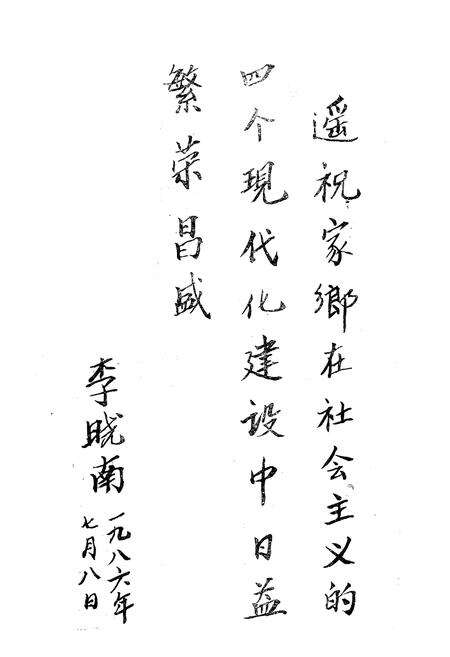 遥祝家鄉在社会主义的
四个現代化建设中日益
繁荣昌盛
李晓南
一九八六年
七月八日